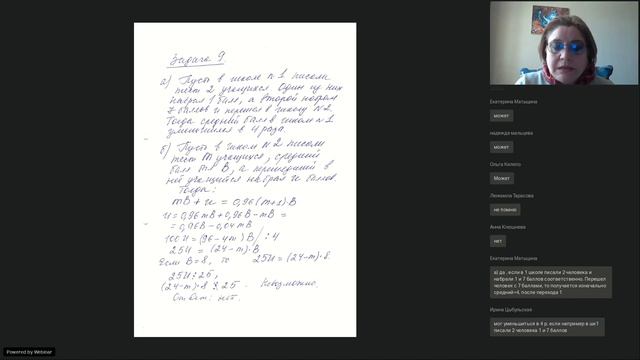 Задача 9
а) Пусть в школе №1 писали
тест 2 учащихся. Один из них
набрал 1 балл, а второй набрал
7 баллов и перешел в школу №2.
Тогда средний балл в школе №1
уменьшился в 4 раза.
б) Пусть в школе №2 писали
тест m учащихся, средний
балл B, а перешедший в
неё учащийся набрал u баллов.
Тогда:
mB + u = 0,96(m+1)·B
u = 0,96mB + 0,96B - mB =
= 0,96B - 0,04mB
100u = (96 - 4m)B /:4
25u = (24-m)·B
Если B=8, то 25u = (24-m)·8
25u⋮25,
(24-m)·8 ⋮̸ 25. Невозможно.
Ответ: нет.
Екатерина Матыцина
может
надежда мальцева
может
Ольга Килюго
Может
Людмила Тарасова
не помню
Анна Клюшнева
нет
Екатерина Матыцина
а) да , если в 1 школе писали 2 человека и
набрали 1 и 7 баллов соответственно. Перешел
человек с 7 баллами, то получается изначально
средний=4, после перехода 1.
Ирина Цыбульская
мог уменьшиться в 4 р. если например в шк1
писали 2 человека 1 и 7 баллов
Powered by Webinar